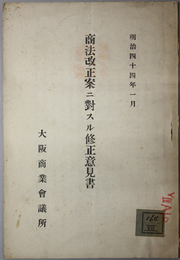 明治四十四年一月
商法改正案ニ對スル修正意見書
大阪商業會議所